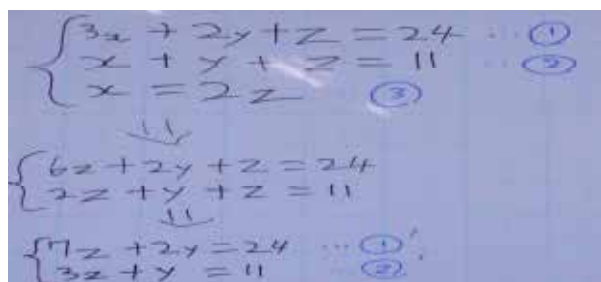 3x + 2y + z = 24 ... ①
x + y + z = 11 ... ②
x = 2z ③
⇓
6z + 2y + z = 24
2z + y + z = 11
⇓
7z + 2y = 24 ... ①'
3z + y = 11 ... ②'